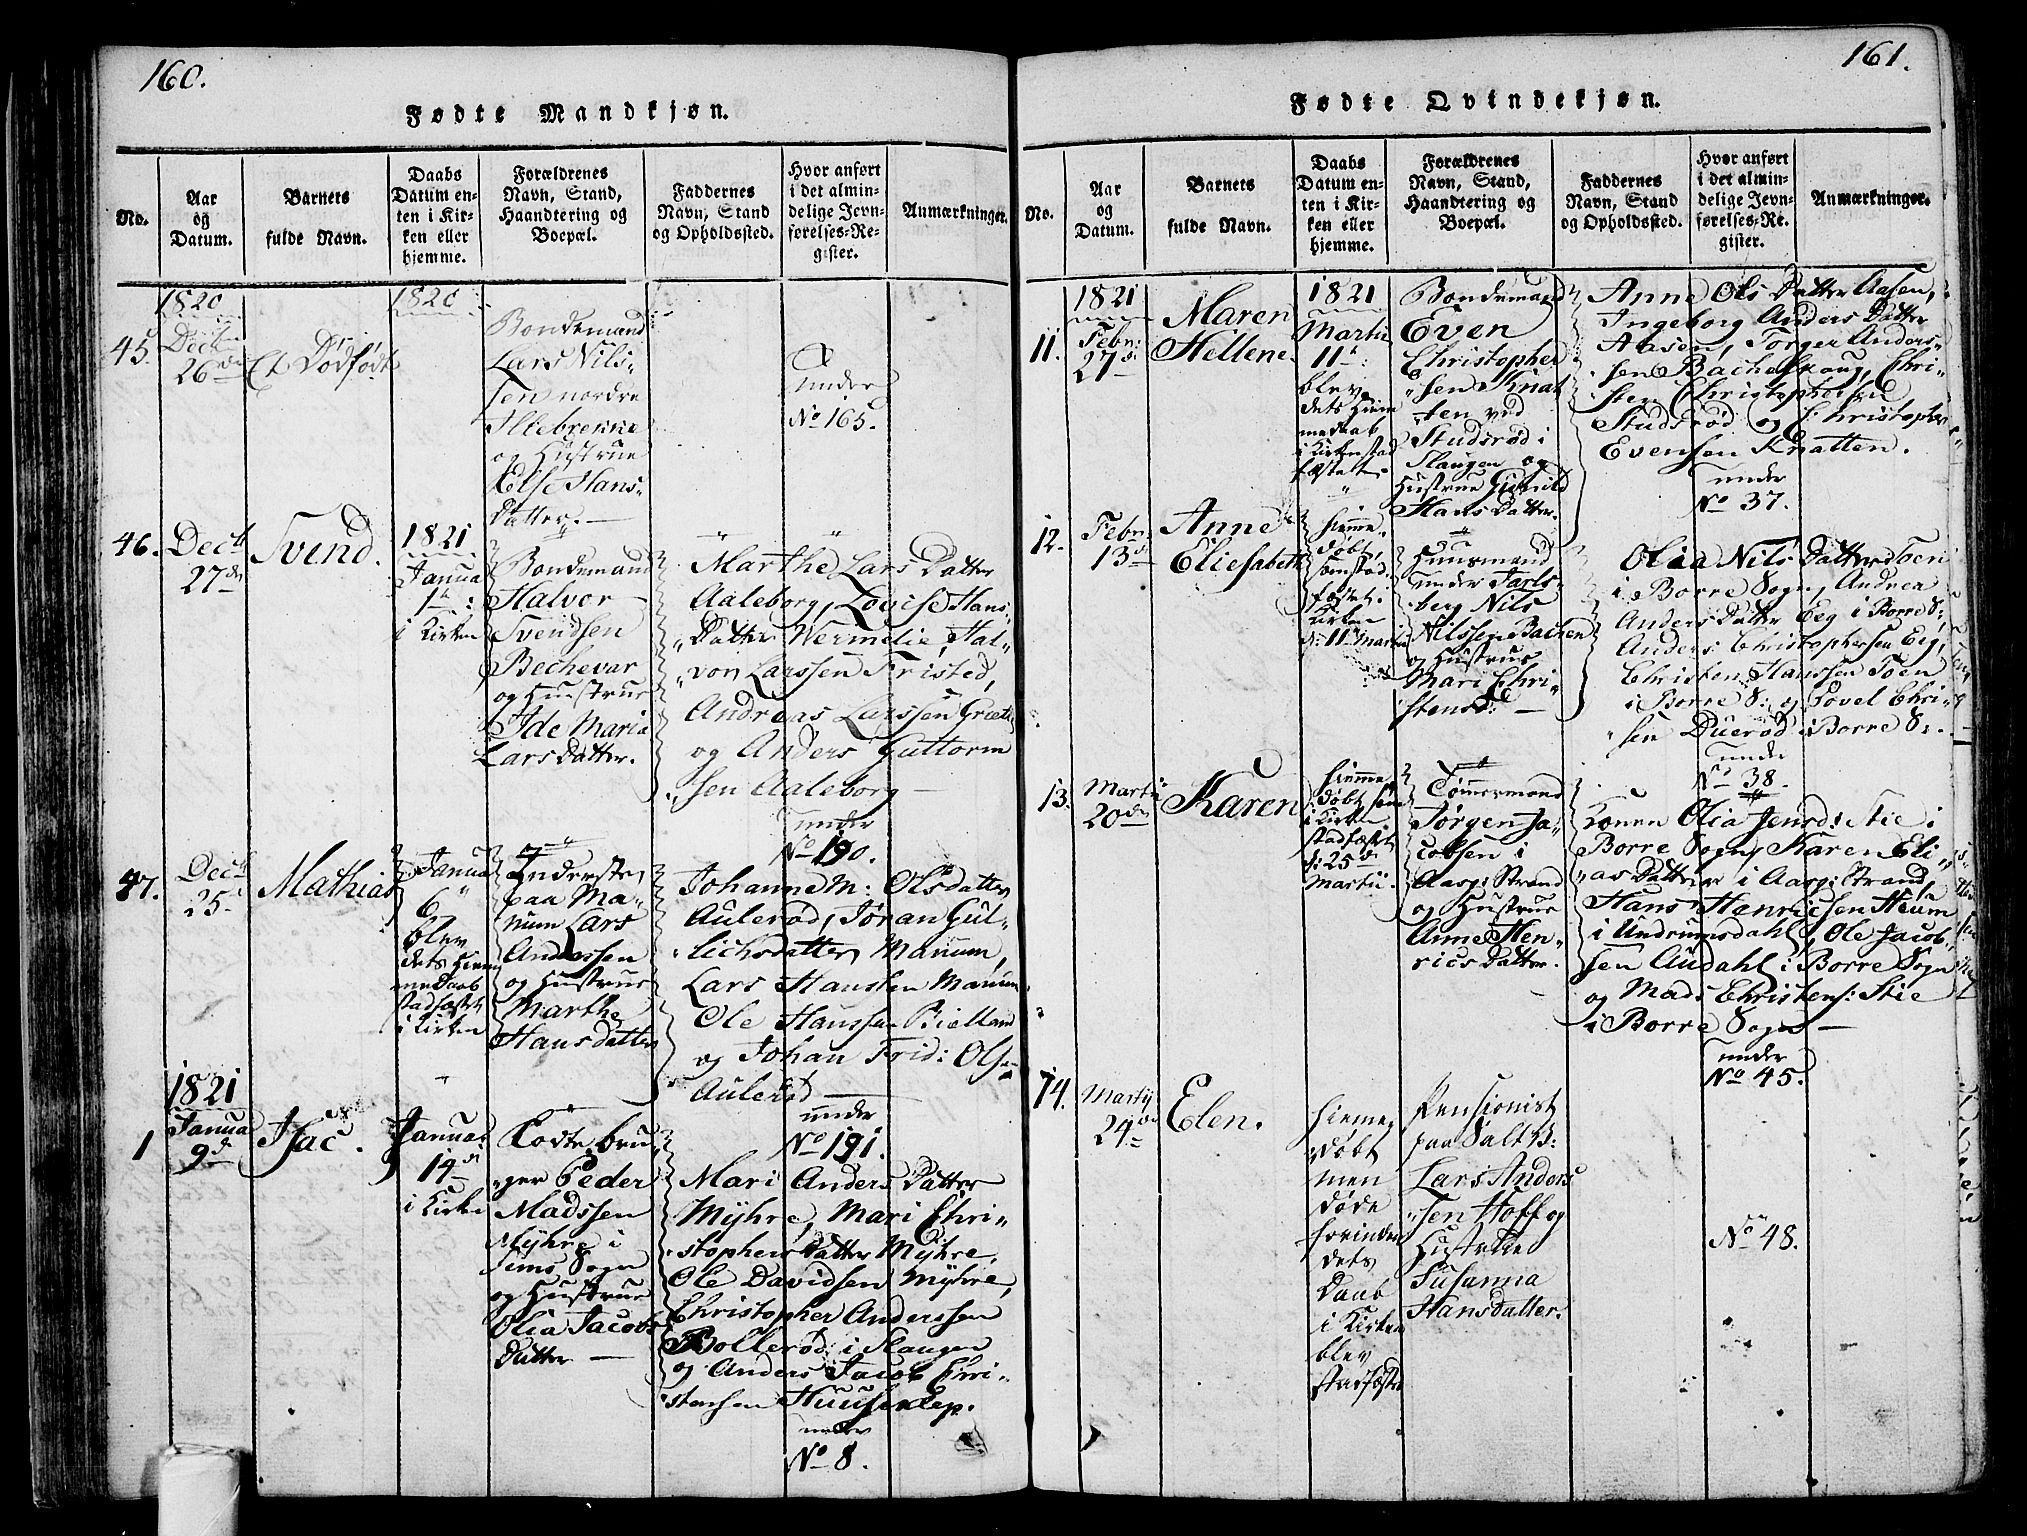 160.
Fødte Mandkjøn.
No.
Aar
og
Datum.
Barnets
fulde Navn.
Daabs
Datum en-
ten i Kir-
ken eller
hjemme.
Forældrenes
Navn, Stand,
Haandtering og
Boepæl.
Faddernes
Navn, Stand
og Opholdssted.
Hvor anført
i det almin-
delige Jevn-
førelses-Re-
gister.
Anmærkninger.
45.
1820
Decbr
26de
Et Dødfødt
1820
Bondemand
Lars Nils-
sen nordre
Illebrenne
og Hustrue
Else Hans-
Datter. —
under
No 165.
46.
Decb
27de
Svend.
1821
Janua
1te
i Kirken
Bondemand
Halvor
Svendsen
Bechevar
og Hustrue
Ide Maria
Lars Datter.
Marthe Lars Datter
Aaleborg, Lovise Hans-
Datter Wermelie, Hal-
vor Larssen Fristed,
Andreas Larssen
og Anders Guttorm
sen Aaleborg —
under
No 190.
47.
Decb
25de
Mathias
Janua
6
blev
dets Hiem
me Daab
stadfæstet
i Kirken
Inderste
paa Ma-
num Lars
Anderssen
og Hustrue
Marthe
Hans datter
Johanne M: Olsdatter
Aulerød, Jøran Gul-
lichsdatter Manum,
Lars Hanssen Manum
Ole Hanssen Bielland
og Johan Frid: Olsen
Aulerød —
under
No 191.
1
1821
Janua
9de
Isac.
Januar
14de
i Kirken
Lodte bru-
ger Peder
Madssen
Myhre i
Sems Sogn
og Hustrue
Olia Jacobs
Datter —
Mari Anders Datter
Myhre, Mari Chri-
stophers Datter Myhre,
Ole Davidsen Myhre,
Christopher Anderssen
Bollerød i Slaugen
og Anders Jacob Chri-
stensen
under
No 8.
161.
Fødte Qvindekjøn.
No.
Aar
og
Datum.
Barnets
fulde Navn.
Daabs
Datum en-
ten i Kir-
ken eller
hjemme.
Forældrenes
Navn, Stand,
Haandtering og
Boepæl.
Faddernes
Navn, Stand
og Opholdssted.
Hvor anført
i det almin-
delige Jevn-
førelses-Re-
gister.
Anmærkninger.
11.
1821
Febr:
27de
Maren
Hellene
1821
Martii
11te:
blev
dets Hiem
medaab
i Kirken stad
fæstet.
Bondemand
Even
Christopher
sen Knat
ten ved
Studsrød i
Slaugen og
Hustrue Gunild
Hans Datter.
Anne Ols Datter Aasen,
Ingeborg Anders Datter
Aasen, Torger Anders-
sen Bacheskaug, Chri-
sten Christophersen
Studsrød og Christopher
Evensen Knatten.
under
No 37.
12.
Febr:
13de
Anne
Eliesabeth
hieme
døbt,
som stad
fæstet i
Kirken
d: 11te Martii
Huusmand
under Jarls-
berg Nils
Nilssen Bachen
og Hustrue
Mari Chri-
stensd: —
Olia Nils Datter Toen
i Borre Sogn, Andrea
Anders Datter Eeg i Borre S:
Anders Christophersen Eeg,
Christen Hanssen Toen
i Borre S: og Povel Chri-
sen Duerød i Borre S:
under
No 38.
13.
Martii
20de
Karen
hieme
døbt som
i Kirken
stadfæstet
d: 25de
Martii.
Tømermand
Jørgen Ja-
cobsen i
Aasg: Strand
og Hustrue
Anne Hen-
rics Datter.
Konen Olia Jensd: Stie i
Borre Sogn, Karen Eli-
as Datter i Aasg: Strand
Hans Henricsen Heum
i Undrumsdahl, Ole Jacob-
sen Audahl i Borre Sogn
og Mads Christens: Stie
i Borre Sogn —
under
No 45.
14.
Martij
24de
Elen.
hieme
døbt
men
døde
forinden
dets
Daab
i Kirken
blev
stadfæstet
Pensionist
paa Salt B:
Lars Anders
sen Hoff og
Hustrue
Susanna
Hansdatter.
No 48.